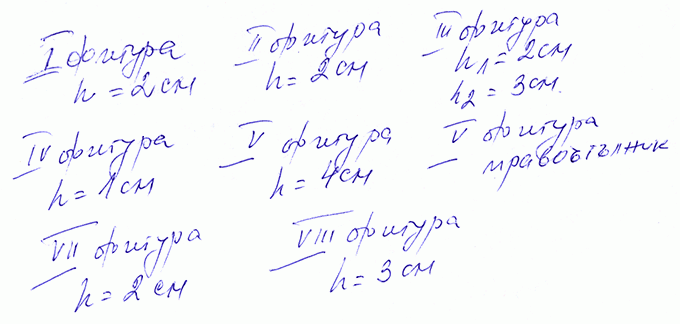 I фигура
h = 2 см
II фигура
h = 2 см
III фигура
h1 = 2 см
h2 = 3 см.
IV фигура
h = 1 см
V фигура
h = 4 см
V фигура
правоъгълник
VII фигура
h = 2 см
VIII фигура
h = 3 см